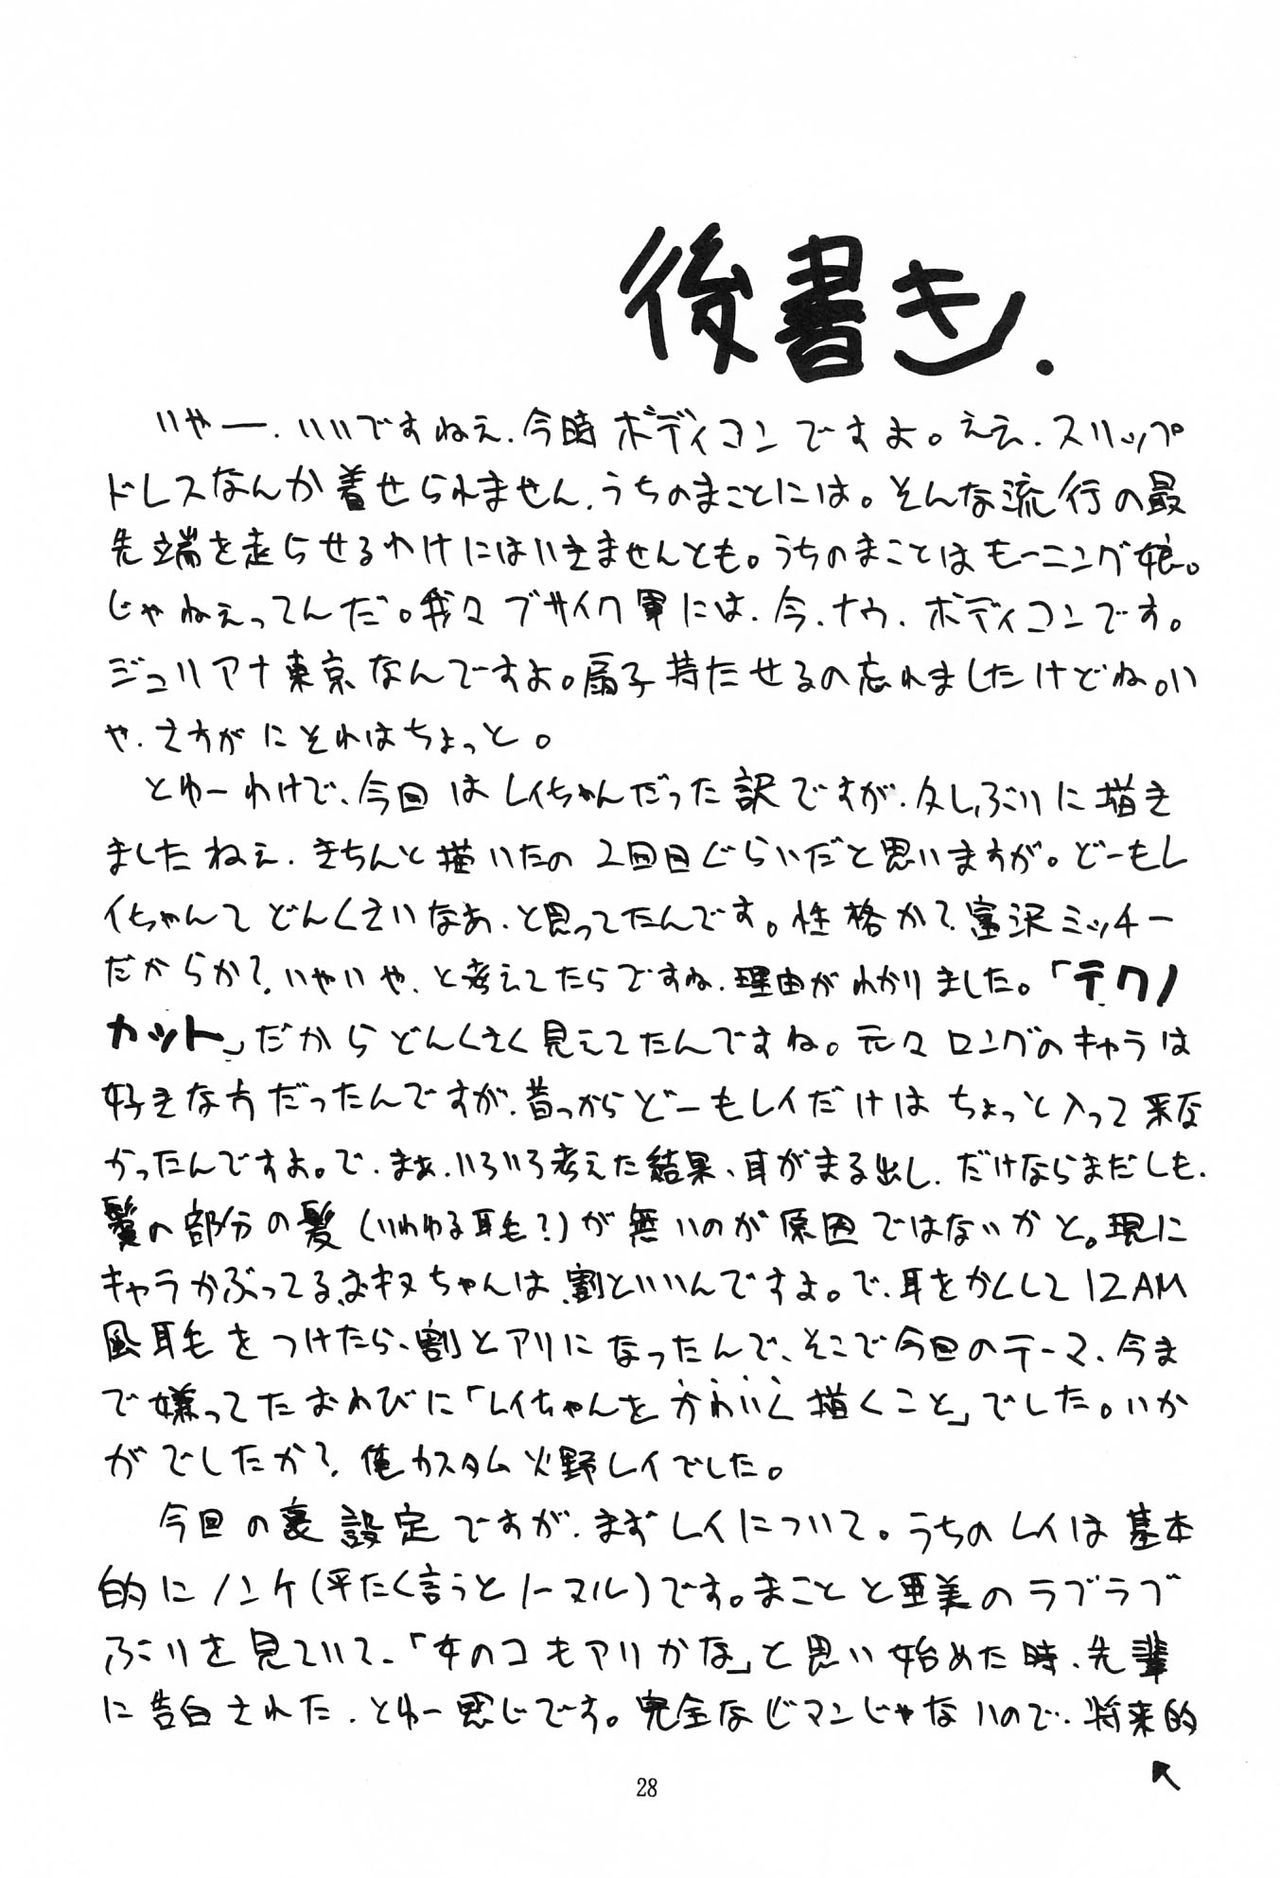 後書き.
いやー.いいですねえ.今時ボディコンですよ。ええ.スリップ
ドレスなんか着せられません.うちのまことには。そんな流行の最
先端を走らせるわけにはいきませんとも。うちのまことはモーニング娘。
じゃねえってんだ。我々ブサイク軍には.今.ナウ.ボディコンです。
ジュリアナ東京なんですよ。扇子持たせるの忘れましたけどね。い
や.さすがにそれはちょっと。
とゆーわけで、今回はレイちゃんだった訳ですが.久しぶりに描き
ましたねえ.きちんと描いたの2回目ぐらいだと思いますが。どーもレ
イちゃんてどんくさいなあ.と思ってたんです。性格か?富沢ミッチー
だからか?いやいや.と考えてたらですね.理由がわかりました。「テクノ
カット」だからどんくさく見えてたんですね。元々ロングのキャラは
好きな方だったんですが.昔っからどーもレイだけはちょっと入って来な
かったんですよ。で.まぁ.いろいろ考えた結果、耳がまる出し.だけならまだしも.
鬢の部分の髪(いわゆる耳毛?)が無いのが原因ではないかと。現に
キャラかぶってるおキヌちゃんは割といいんですよ。で.耳をかくして12AM
風耳毛をつけたら、割とアリになったんで、そこで今回のテーマ、今ま
で嫌ってたおわびに「レイちゃんをかわいく描くこと」でした。いか
がでしたか?俺カスタム火野レイでした。
今回の裏設定ですが.まずレイについて。うちのレイは基本
的にノンケ(平たく言うとノーマル)です。まことと亜美のラブラブ
ぶりを見ていて、「女のコもアリかな」と思い始めた時、先輩
に告白された.とゆー感じです。完全なビアンじゃないので.将来的
28